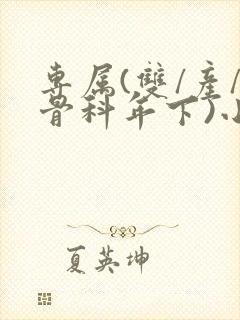 専属(雙/產/
骨科年下)小
夏英坤